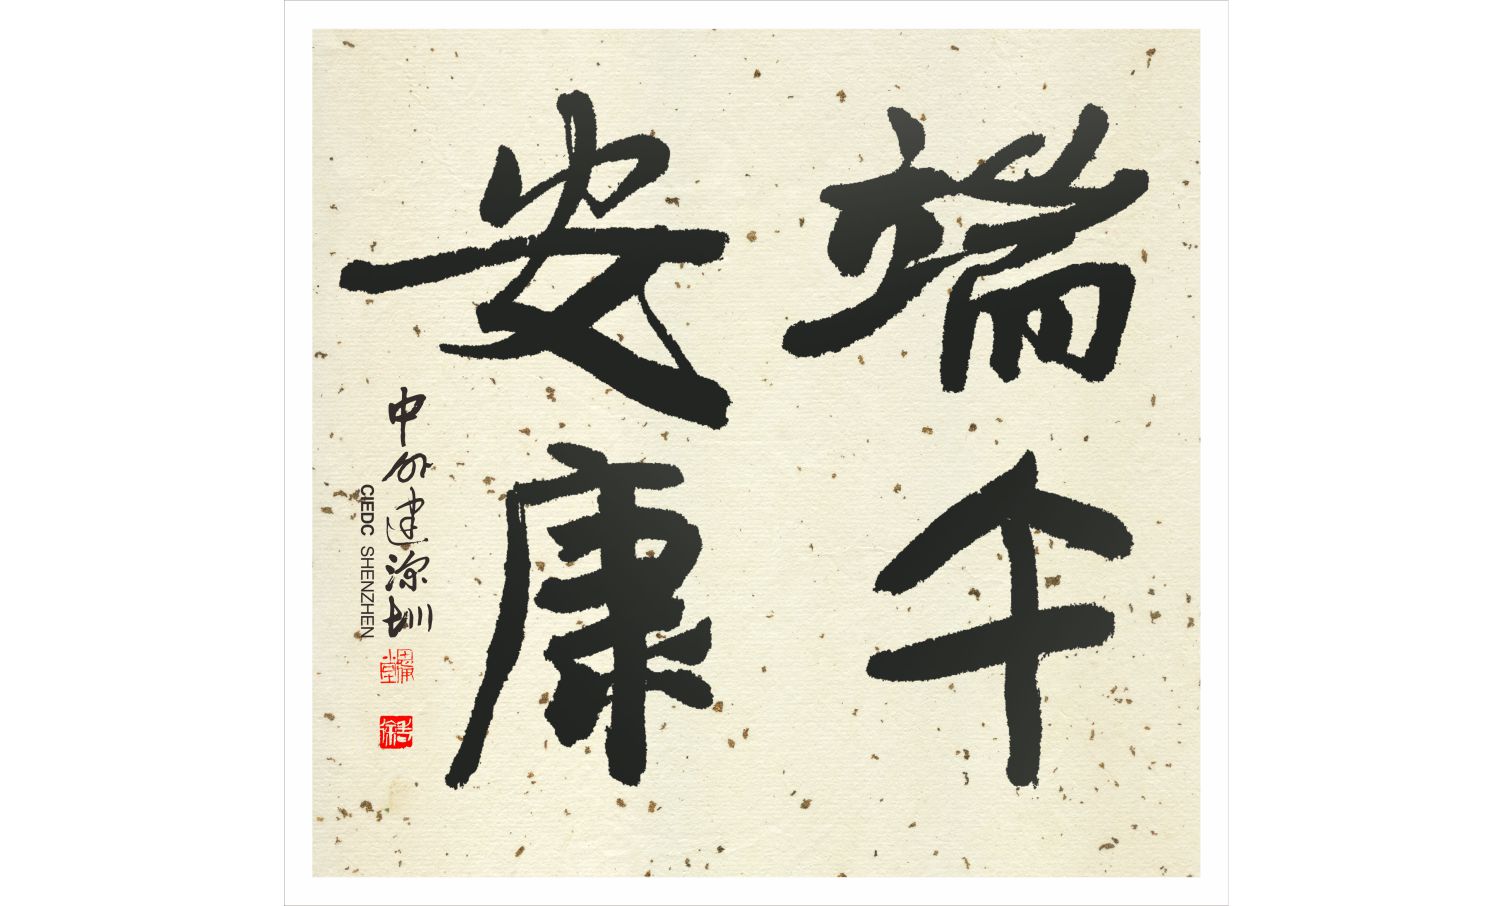 端午
安康
中外建深圳
CIEDC SHENZHEN